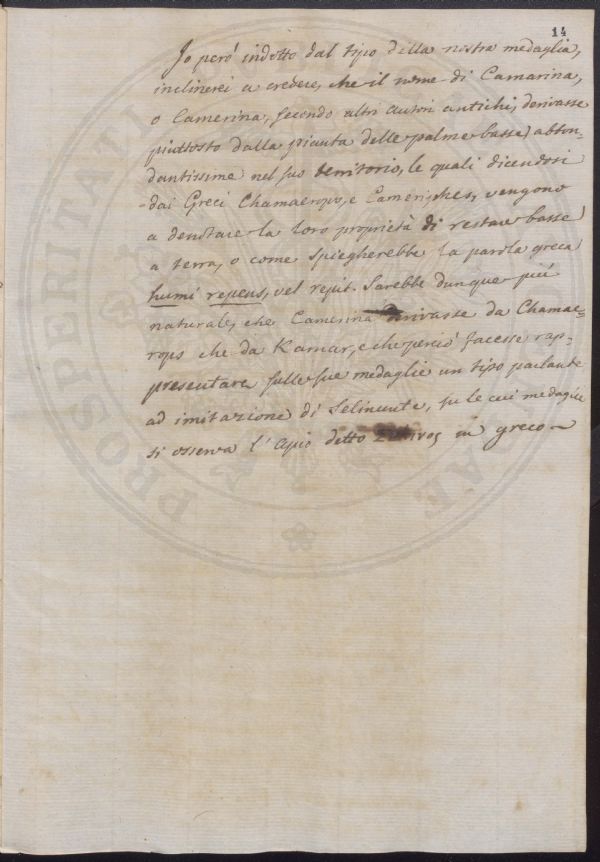 14
Io però indotto dal tipo della nostra medaglia,
inclinerei a credere, che il nome di Camarina,
o Camerina, secondo altri autori antichi, derivasse
piuttosto dalla pianta delle palme basse) abbon-
dantissime nel suo territorio, le quali dicendosi
dai Greci Chamaerops, e Cameriphes, vengono
a denotare la loro proprietà di restare basse)
a terra, o come spiegherebbe la parola greca
humi repens, vel repit. Sarebbe dunque più
naturale, che Camerina derivasse da Chamae=
rops che da Kamar, e che perciò facesse rap-
presentare sulle sue medaglie un tipo parlante
ad imitazione di Selinunte, su le cui medaglie
si osserva l'Apio detto in greco
PROSPERITATI